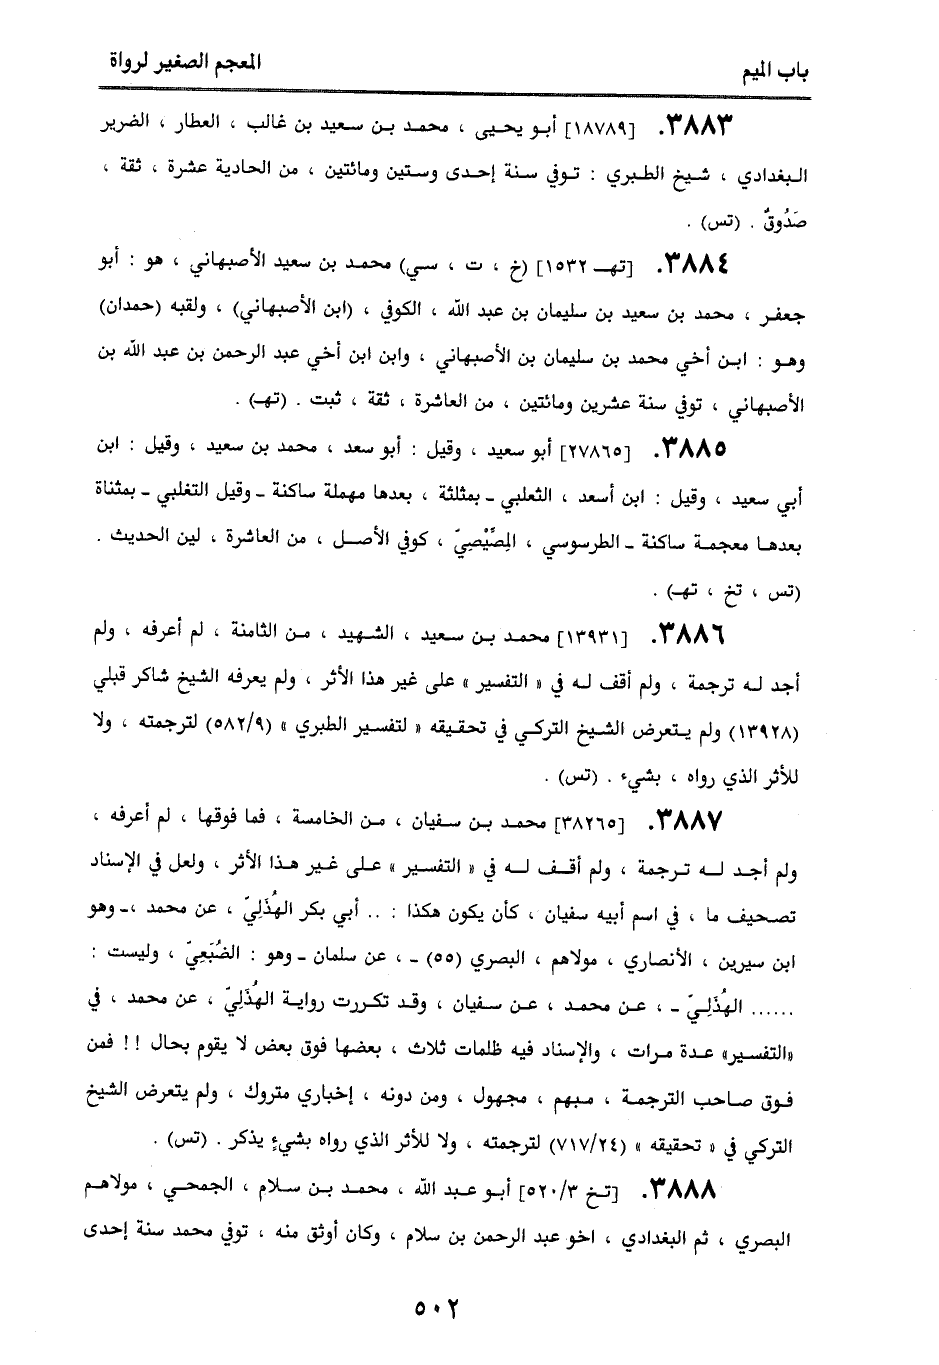 باب الميم
المعجم الصغير لرواة
٣٨٨٣. [١٨٧٨٩] أبو يحيى ، محمد بن سعيد بن غالب ، العطار ، الضرير
البغدادي ، شيخ الطبري : توفي سنة إحدى وستين ومائتين ، من الحادية عشرة ، ثقة ،
صَدُوقٌ . (تس) .
٣٨٨٤. [تهـ ١٥٣٢] (خ ، ت ، سي) محمد بن سعيد الأصبهاني ، هو : أبو
جعفر ، محمد بن سعيد بن سليمان بن عبد الله ، الكوفي ، (ابن الأصبهاني) ، ولقبه (حمدان)
وهو : ابن أخي محمد بن سليمان بن الأصبهاني ، وابن ابن أخي عبد الرحمن بن عبد الله بن
الأصبهاني ، توفي سنة عشرين ومائتين ، من العاشرة ، ثقة ، ثبت . (تهـ) .
٣٨٨٥. [٢٧٨٦٥] أبو سعيد ، وقيل : أبو سعد ، محمد بن سعيد ، وقيل : ابن
أبي سعيد ، وقيل : ابن أسعد ، الثعلبي ـ بمثلثة ، بعدها مهملة ساكنة ـ وقيل التغلبي ـ بمثناة
بعدها معجمة ساكنة ـ الطرسوسي ، المِصِّيْصِيّ ، كوفي الأصل ، من العاشرة ، لين الحديث .
(تس ، تخ ، تهـ) .
٣٨٨٦. [١٣٩٣١] محمد بن سعيد ، الشهيد ، من الثامنة ، لم أعرفه ، ولم
أجد له ترجمة ، ولم أقف له في « التفسير » على غير هذا الأثر ، ولم يعرفه الشيخ شاكر قبلي
(١٣٩٢٨) ولم يتعرض الشيخ التركي في تحقيقه « لتفسير الطبري » (٥٨٢/٩) لترجمته ، ولا
للأثر الذي رواه ، بشيء . (تس) .
٣٨٨٧. [٣٨٢٦٥] محمد بن سفيان ، من الخامسة ، فما فوقها ، لم أعرفه ،
ولم أجد له ترجمة ، ولم أقف له في « التفسير » على غير هذا الأثر ، ولعل في الإسناد
تصحيف ما ، في اسم أبيه سفيان ، كأن يكون هكذا : .. أبي بكر الهُذَلِيّ ، عن محمد ،ـ وهو
ابن سيرين ، الأنصاري ، مولاهم ، البصري (٥٥) ـ ، عن سلمان ـ وهو : الضُبَعِيّ ، وليست :
...... الهُذَلِيّ ـ ، عن محمد ، عن سفيان ، وقد تكررت رواية الهُذَلِيّ ، عن محمد ، في
«التفسير» عدة مرات ، والإسناد فيه ظلمات ثلاث ، بعضها فوق بعض لا يقوم بحال !! فمن
فوق صاحب الترجمة ، مبهم ، مجهول ، ومن دونه ، إخباري متروك ، ولم يتعرض الشيخ
التركي في « تحقيقه » (٧١٧/٢٤) لترجمته ، ولا للأثر الذي رواه بشيءٍ يذكر . (تس) .
٣٨٨٨. [تخ ٥٢٠/٣] أبو عبد الله ، محمد بن سلام ، الجمحي ، مولاهم
البصري ، ثم البغدادي ، اخو عبد الرحمن بن سلام ، وكان أوثق منه ، توفي محمد سنة إحدى
٥٠٢